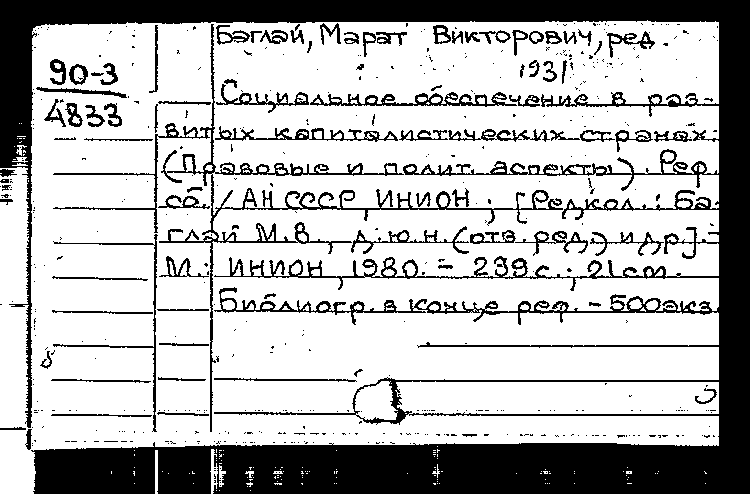 Баглай, Марат Викторович, ред.
1931
90-3
4833
Социальное обеспечение в раз-
витых капиталистических странах:
(Правовые и полит. аспекты). Реф.
сб. / АН СССР, ИНИОН ; [Редкол.: Ба-
глай М.В., д.ю.н. (отв. ред.) и др.]. -
М.: ИНИОН, 1980. - 239 с. ; 21 см.
Библиогр. в конце реф. - 500 экз.